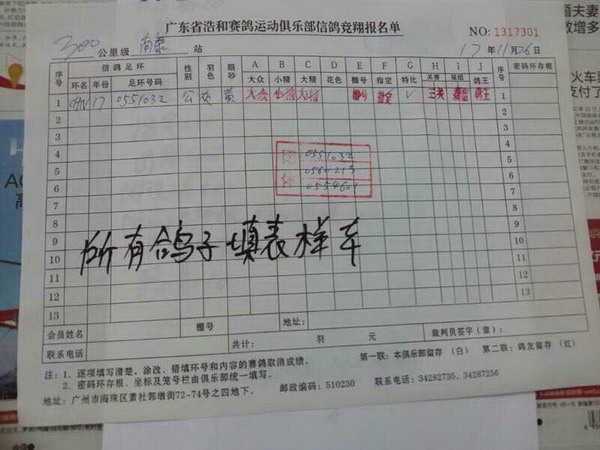 广东省浩和赛鸽运动俱乐部信鸽竞翔报名单
NO: 1317301
300 公里级 南康 站 17年11月26日
序号 信鸽足环 性别 羽色 眼砂 A B C D E F G H I J 序号 密码环存根
环名 年份 足环号码 大众 小精 大精 花色 棚号 指定 特比 鸽王
1 CHN 17 0551032 公 黄 大众 小精 大精 棚号 指定 √ 三关 鸽王 1
2 2
3 3
4 团 0551032 4
5 5
6 体 6
7 7
8 8
9 所有鸽子填表样车 9
10 10
11 11
12 12
13 13
会员姓名 棚号 地址:
联系电话 共计: 羽 元 裁判员签字(章):
注:1. 逐项填写清楚,涂改、错填环号和内容的赛鸽取消成绩。 第一联:本俱乐部留存(白) 第二联:鸽友留存(红)
2. 密码环存根、坐标及笼号栏由俱乐部统一填写。
地址:广州市海珠区素社郭墩街72-74号之四地下. 邮政编码:510230 联系电话:34282735、34287256